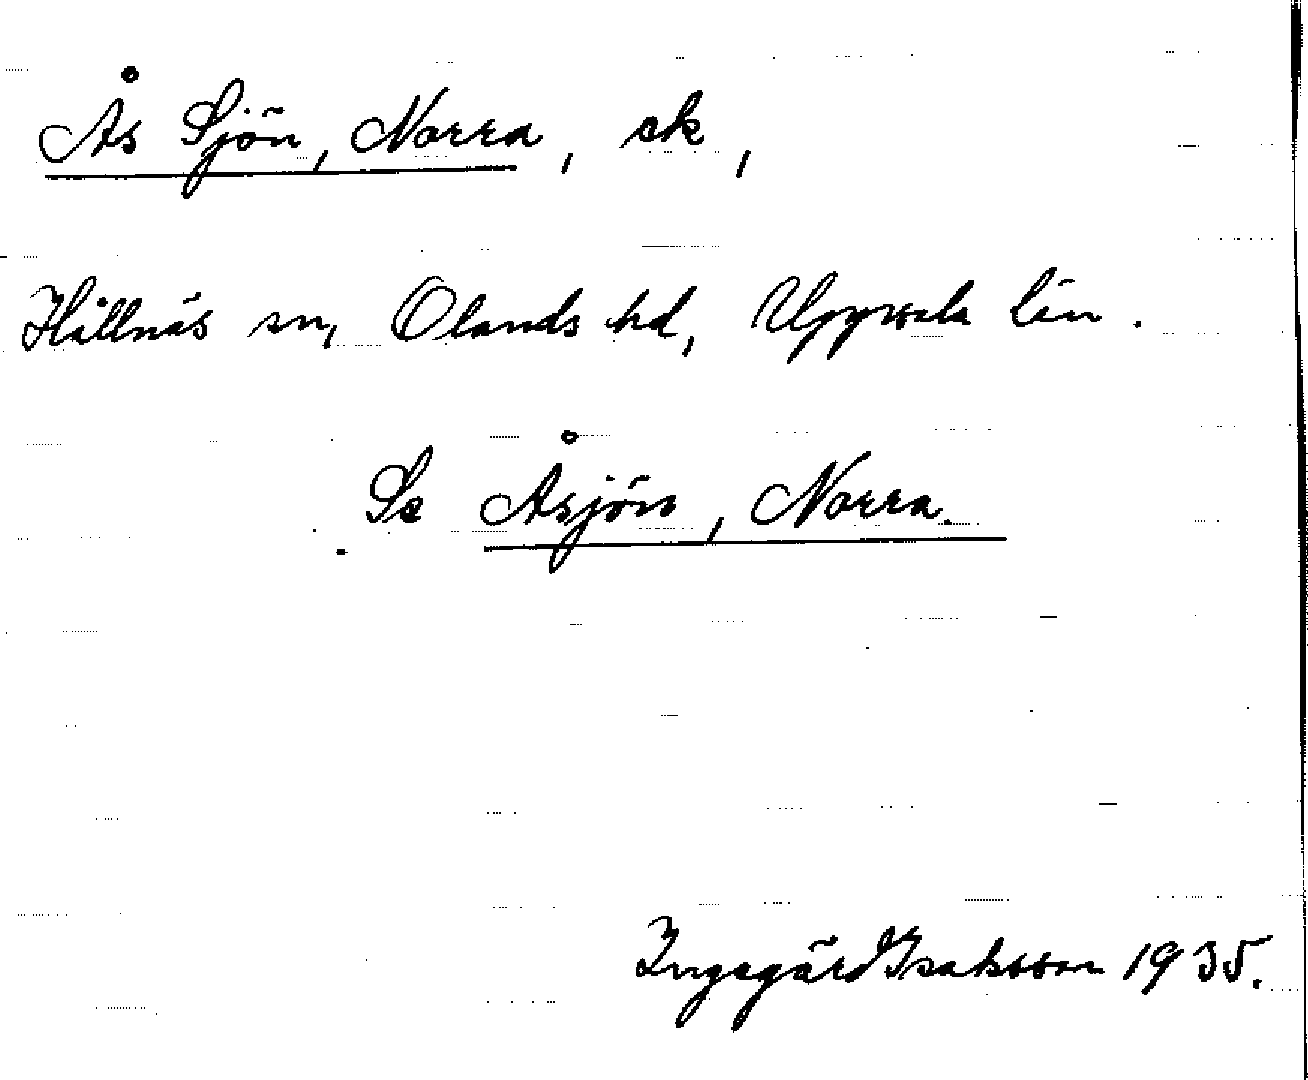 Ås Sjön, Norra, ek,
Hållnäs sn, Olands hd, Uppsala län.
Se Åsjön, Norra.
Ingegärd Isaksson 1935.